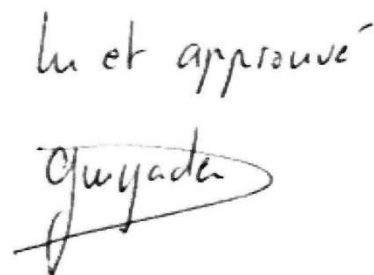 lu et approuvé
Guyader